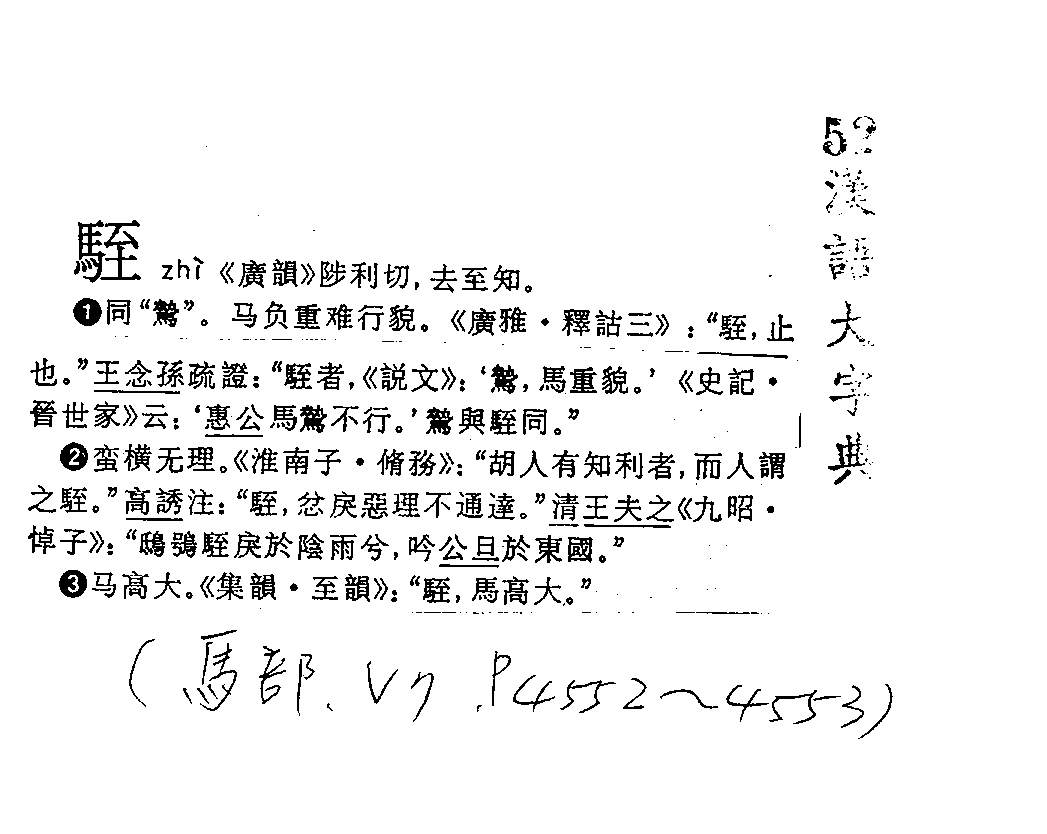 52漢語大字典
駤 zhì《廣韻》陟利切，去至知。
❶同“騺”。马负重难行貌。《廣雅·釋詁三》：“駤，止
也。”王念孫疏證：“駤者，《説文》：‘騺，馬重貌。’《史記·
晉世家》云：‘惠公馬騺不行。’騺與駤同。”
❷蛮横无理。《淮南子·脩務》：“胡人有知利者，而人謂
之駤。”高誘注：“駤，忿戾惡理不通達。”清王夫之《九昭·
悼子》：“鴟鴞駤戾於陰雨兮，吟公旦於東國。”
❸马高大。《集韻·至韻》：“駤，馬高大。”
（馬部、V7，P4552～4553）